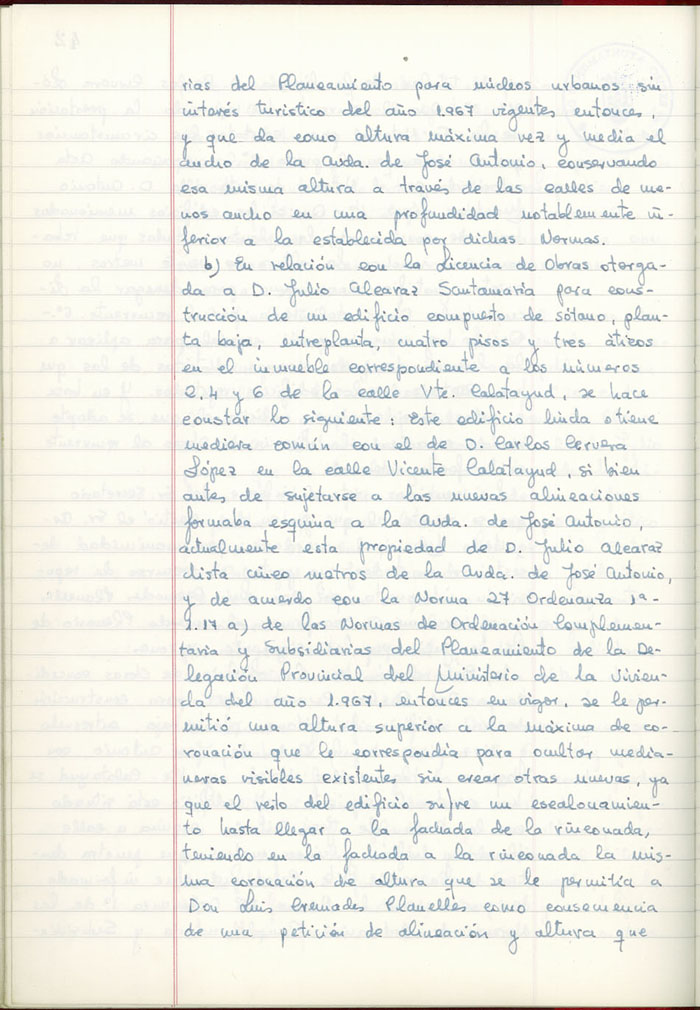 rias del Planeamiento para núcleos urbanos sin
interés turístico del año 1.967 vigentes entonces,
y que da como altura máxima vez y media el
ancho de la Avda. de José Antonio, conservando
esa misma altura a través de las calles de me-
nos ancho en una profundidad notablemente in-
ferior a la establecida por dichas Normas.
b) En relación con la Licencia de Obras otorga-
da a D. Julio Alcaraz Santamaría para cons-
trucción de un edificio compuesto de sótano, plan-
ta baja, entreplanta, cuatro pisos y tres áticos
en el inmueble correspondiente a los números
2, 4 y 6 de la calle Vte. Calatayud, se hace
constar lo siguiente: Este edificio linda o tiene
mediera común con el de D. Carlos Cervera
López en la calle Vicente Calatayud, si bien
antes de sujetarse a las nuevas alineaciones
formaba esquina a la Avda. de José Antonio,
actualmente esta propiedad de D. Julio Alcaraz
dista cinco metros de la Avda. de José Antonio,
y de acuerdo con la Norma 27 Ordenanza 1ª-
1.17 a) de las Normas de Ordenación Complemen-
taria y Subsidiarias del Planeamiento de la De-
legación Provincial del Ministerio de la Vivien-
da del año 1.967, entonces en vigor, se le per-
mitió una altura superior a la máxima de co-
ronación que le correspondía para ocultar media-
neras visibles existentes sin crear otras nuevas, ya
que el resto del edificio sufre un escalonamien-
to hasta llegar a la fachada de la rinconada,
teniendo en la fachada a la rinconada la mis-
ma coronación de altura que se le permitía a
Don Luis Cremades Planelles como consecuencia
de una petición de alineación y altura que